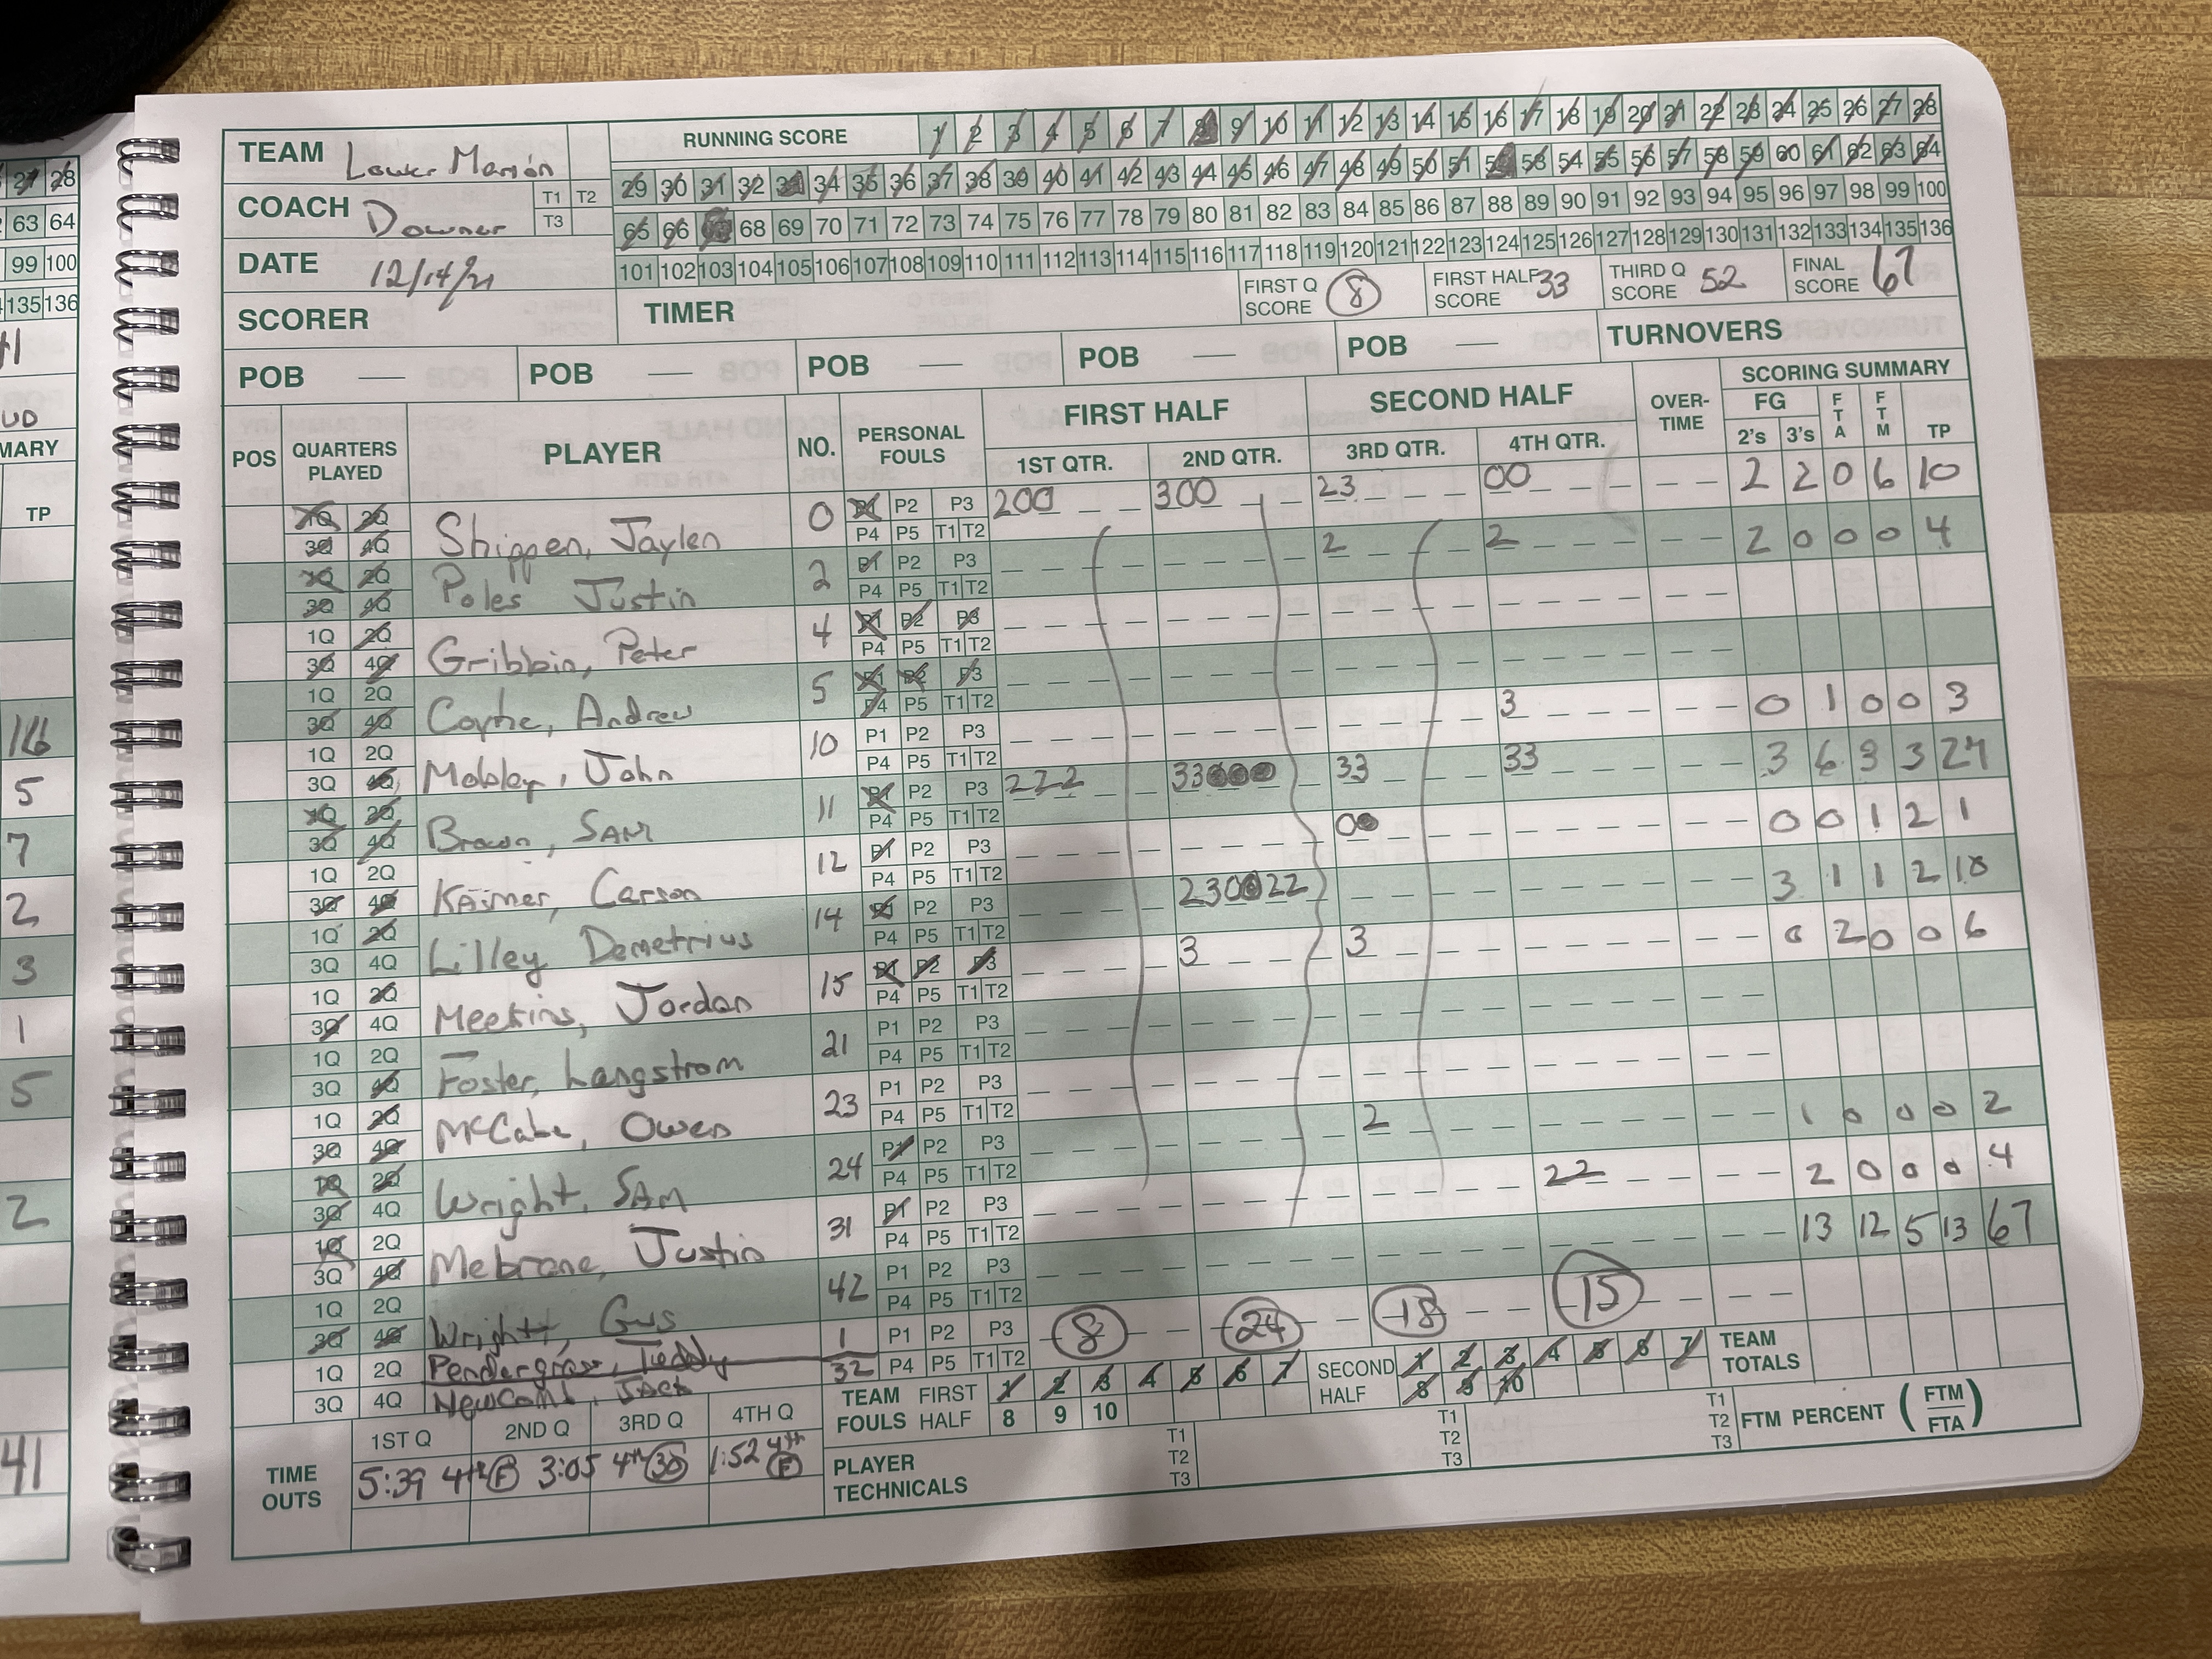 TEAM Lower Merion
COACH Downer T1 T2 T3
DATE 12/14/21
SCORER TIMER
RUNNING SCORE 1 2 3 4 5 6 7 8 9 10 11 12 13 14 15 16 17 18 19 20 21 22 23 24 25 26 27 28
29 30 31 32 33 34 35 36 37 38 39 40 41 42 43 44 45 46 47 48 49 50 51 52 53 54 55 56 57 58 59 60 61 62 63 64
65 66 67 68 69 70 71 72 73 74 75 76 77 78 79 80 81 82 83 84 85 86 87 88 89 90 91 92 93 94 95 96 97 98 99 100
101 102 103 104 105 106 107 108 109 110 111 112 113 114 115 116 117 118 119 120 121 122 123 124 125 126 127 128 129 130 131 132 133 134 135 136
FIRST Q SCORE 8 FIRST HALF SCORE 33 THIRD Q SCORE 52 FINAL SCORE 67
POB — POB — POB — POB — POB — TURNOVERS
POS QUARTERS PLAYED PLAYER NO. PERSONAL FOULS FIRST HALF SECOND HALF OVER-TIME SCORING SUMMARY
1ST QTR. 2ND QTR. 3RD QTR. 4TH QTR. FG 2's 3's FTA FTM TP
1Q 2Q 3Q 4Q Shippen, Jaylen 0 P1 P2 P3 P4 P5 T1 T2 200 300 23 00 2 2 0 6 10
1Q 2Q 3Q 4Q Poles Justin 2 P1 P2 P3 P4 P5 T1 T2 2 2 2 0 0 0 4
1Q 2Q 3Q 4Q Gribbin, Peter 4 P1 P2 P3 P4 P5 T1 T2
1Q 2Q 3Q 4Q Coyne, Andrew 5 P1 P2 P3 P4 P5 T1 T2
1Q 2Q 3Q 4Q Mobley, John 10 P1 P2 P3 P4 P5 T1 T2 3 0 1 0 0 3
1Q 2Q 3Q 4Q Brown, SAM 11 P1 P2 P3 P4 P5 T1 T2 222 33000 33 33 3 6 3 3 27
1Q 2Q 3Q 4Q Kasmer, Carson 12 P1 P2 P3 P4 P5 T1 T2 00 0 0 1 2 1
1Q 2Q 3Q 4Q Lilley Demetrius 14 P1 P2 P3 P4 P5 T1 T2 230022 3 1 1 2 10
1Q 2Q 3Q 4Q Meekins, Jordan 15 P1 P2 P3 P4 P5 T1 T2 3 3 0 2 0 0 6
1Q 2Q 3Q 4Q Foster, Langstrom 21 P1 P2 P3 P4 P5 T1 T2
1Q 2Q 3Q 4Q McCabe, Owen 23 P1 P2 P3 P4 P5 T1 T2
1Q 2Q 3Q 4Q Wright, SAM 24 P1 P2 P3 P4 P5 T1 T2 2 1 0 0 0 2
1Q 2Q 3Q 4Q Mebrane, Justin 31 P1 P2 P3 P4 P5 T1 T2 22 2 0 0 0 4
1Q 2Q 3Q 4Q Wright, Gus 42 P1 P2 P3 P4 P5 T1 T2 13 12 5 13 67
1Q 2Q Pendergrass, Teddy 1 P1 P2 P3 8 24 18 15
3Q 4Q Newcomb, Jack 32 P4 P5 T1 T2
TEAM FOULS FIRST HALF 1 2 3 4 5 6 7 8 9 10 SECOND HALF 1 2 3 4 5 6 7 8 9 10 TEAM TOTALS
TIME OUTS 1ST Q 2ND Q 3RD Q 4TH Q
5:39 4th F 3:05 4th 30 1:52 4th F
PLAYER TECHNICALS T1 T2 T3 T1 T2 T3 T1 T2 T3 FTM PERCENT (FTM/FTA)
27 28
63 64
99 100
135 136
MARY
TP
16
5
7
2
3
1
5
2
41